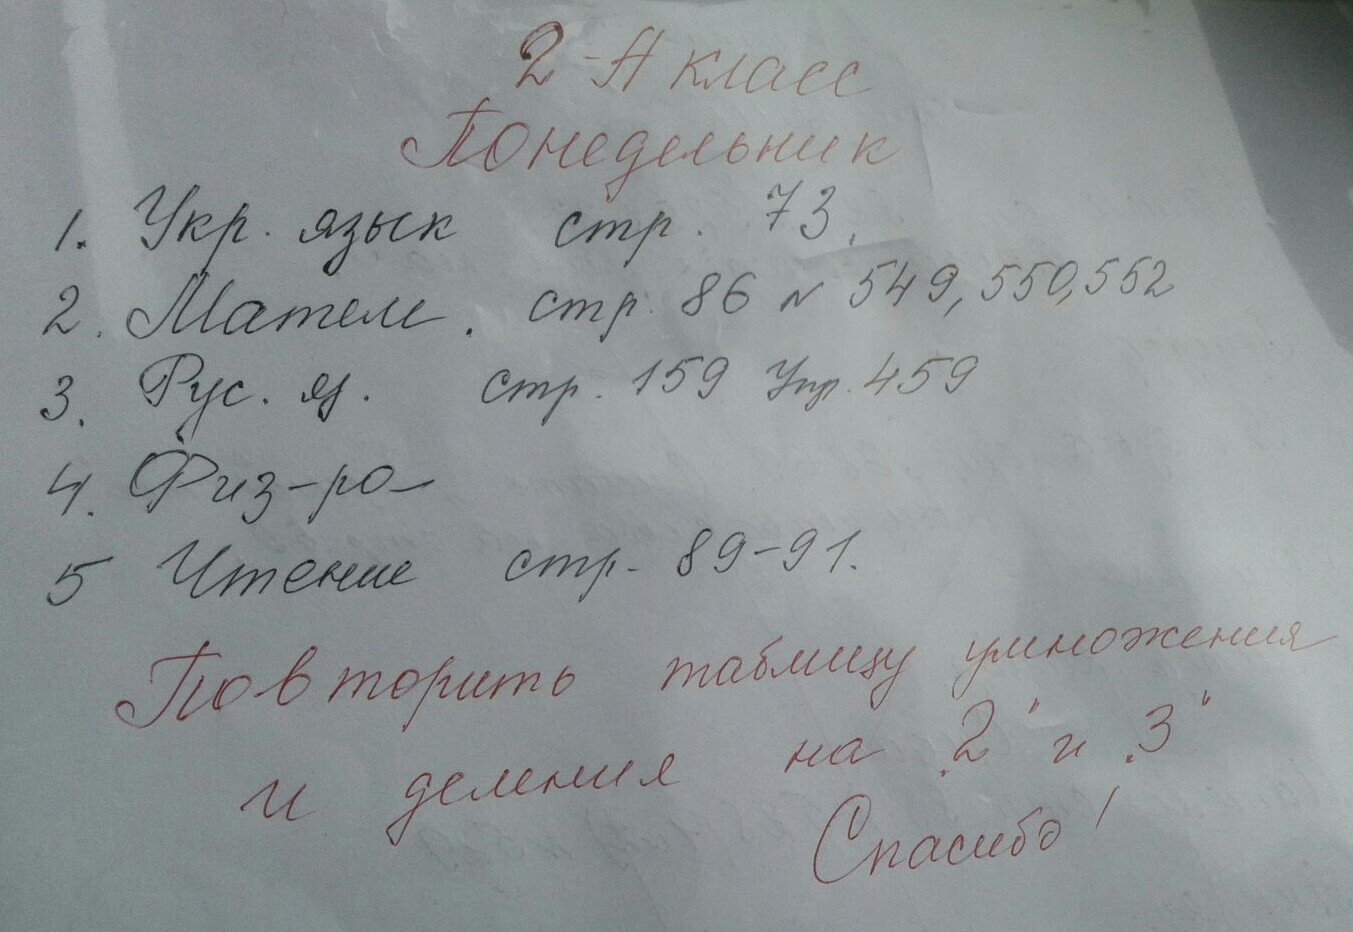 2-А класс
Понедельник
1. Укр. язык стр. 73.
2. Матем. стр. 86 № 549, 550, 552
3. Рус. яз. стр. 159 Упр. 459
4. Физ-ра
5 Чтение стр. 89-91.
Повторить таблицу умножения
и деления на „2" и „3"
Спасибо!